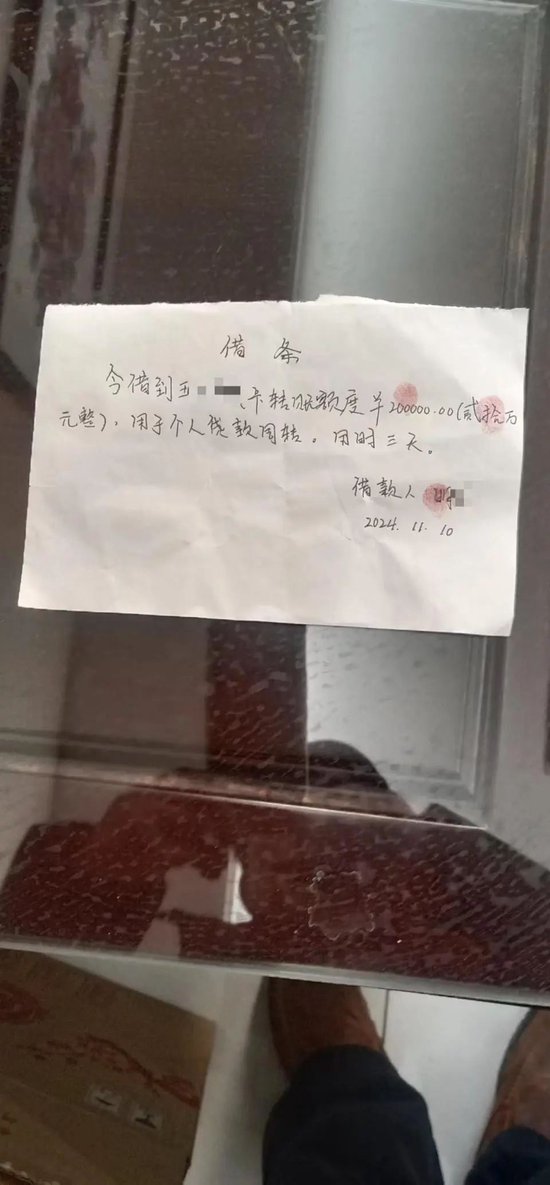 借条
今借到王 卡转账额度¥200000.00(贰拾万
元整),用于个人贷款周转。用时三天。
借款人
2024.11.10